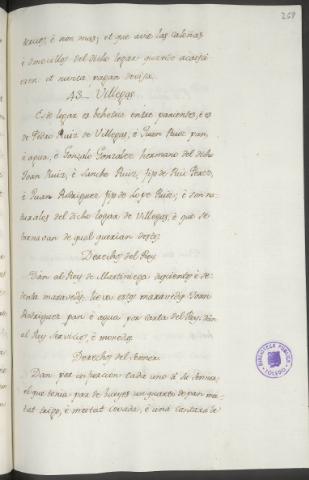 259
servicios, é non mas; et que avie las caloñas
é omecillos del dicho logar quando acaesci
esen et nunca pagan devisa.
43. Villegas.
Este logar es behetria entre parientes, é es
de Pedro Ruiz de Villegas, é Juan Ruiz pan,
é agua, é Gonzalo Gonzalez hermano del dicho
Joan Ruiz, é Sancho Ruiz, fijo de Rui Perez,
é Juan Rodriguez fijo de Lope Ruiz; é son na-
turales del dicho logar de Villegas, é que se
tornavan de qual querian destos.
Derechos del Rey
Dan al Rey de Martiniega docientos é se-
senta maravedis, lieva estos maravedis Joan
Rodriguez pan é agua por carta del Rey. Dan
al Rey servicios, é moneda.
Derechos del Señor
Dan por infurcion cada uno al Señor,
el que tenia par de bueyes un quarto de pan mi-
tat trigo, é meitat cevada, é una cantara de
BIBLIOTECA PUBLICA
TOLEDO